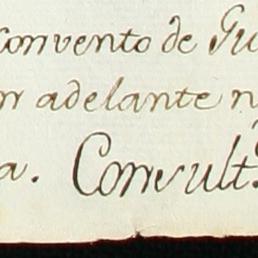 convento de Gu
n adelante n
a. Consult.